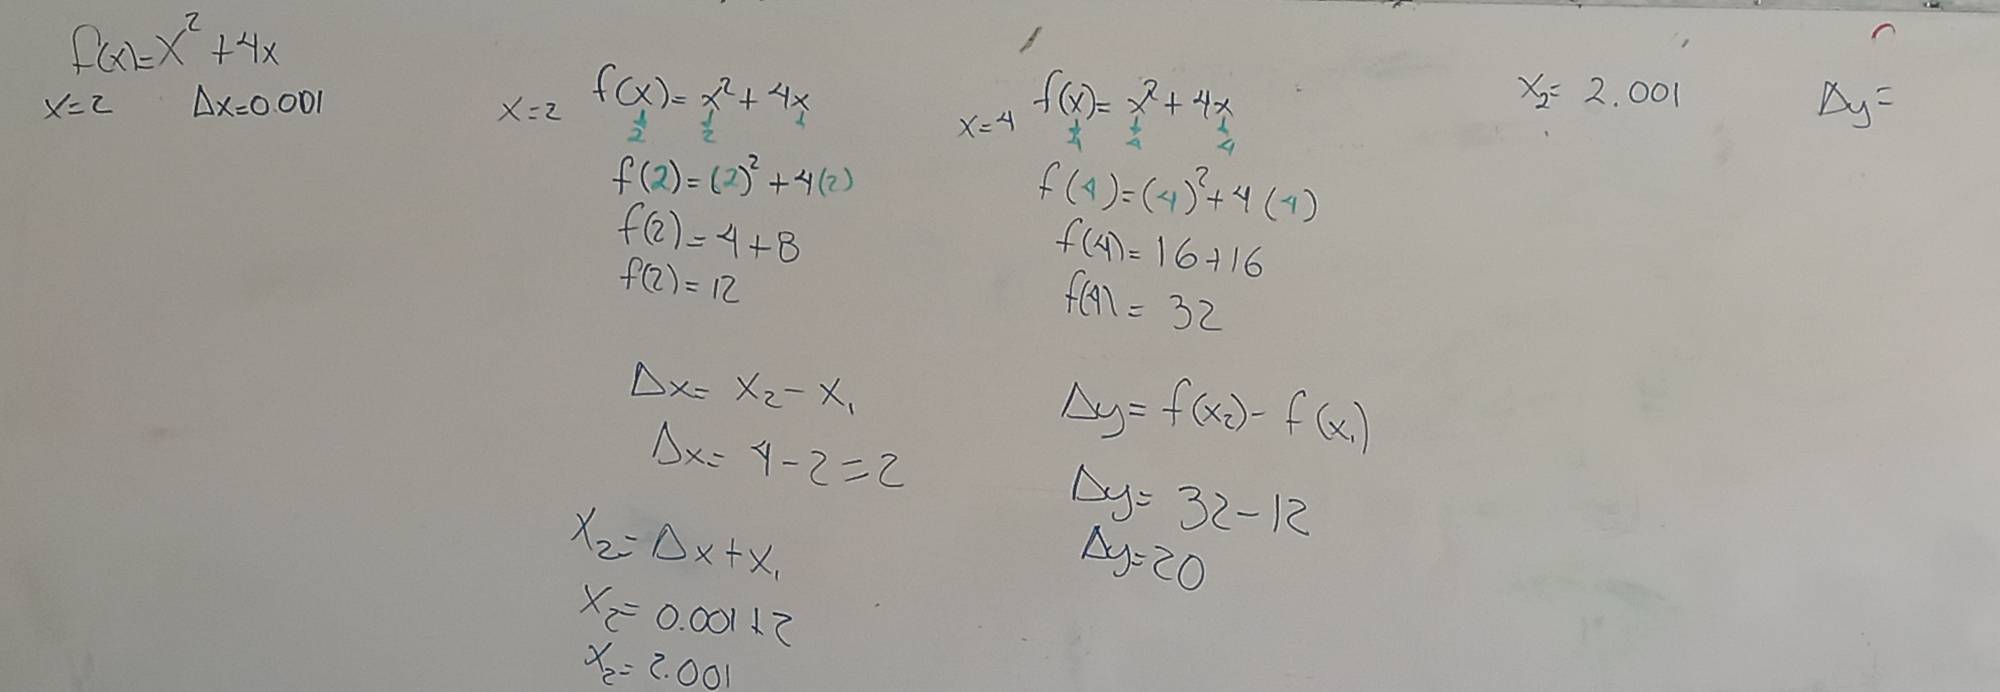 f(x)=x²+4x
x=2 Δx=0.001
x=2 f(x)=x²+4x
2 2
f(2)=(2)²+4(2)
f(2)=4+8
f(2)=12
Δx= x₂-x₁
Δx= 4-2=2
x₂=Δx+x₁
x₂= 0.001+2
x₂= 2.001
x=4 f(x)= x²+4x
4 4 4
f(4)=(4)²+4(4)
f(4)=16+16
f(4)= 32
Δy= f(x₂)- f(x₁)
Δy= 32-12
Δy=20
x₂= 2.001
Δy=